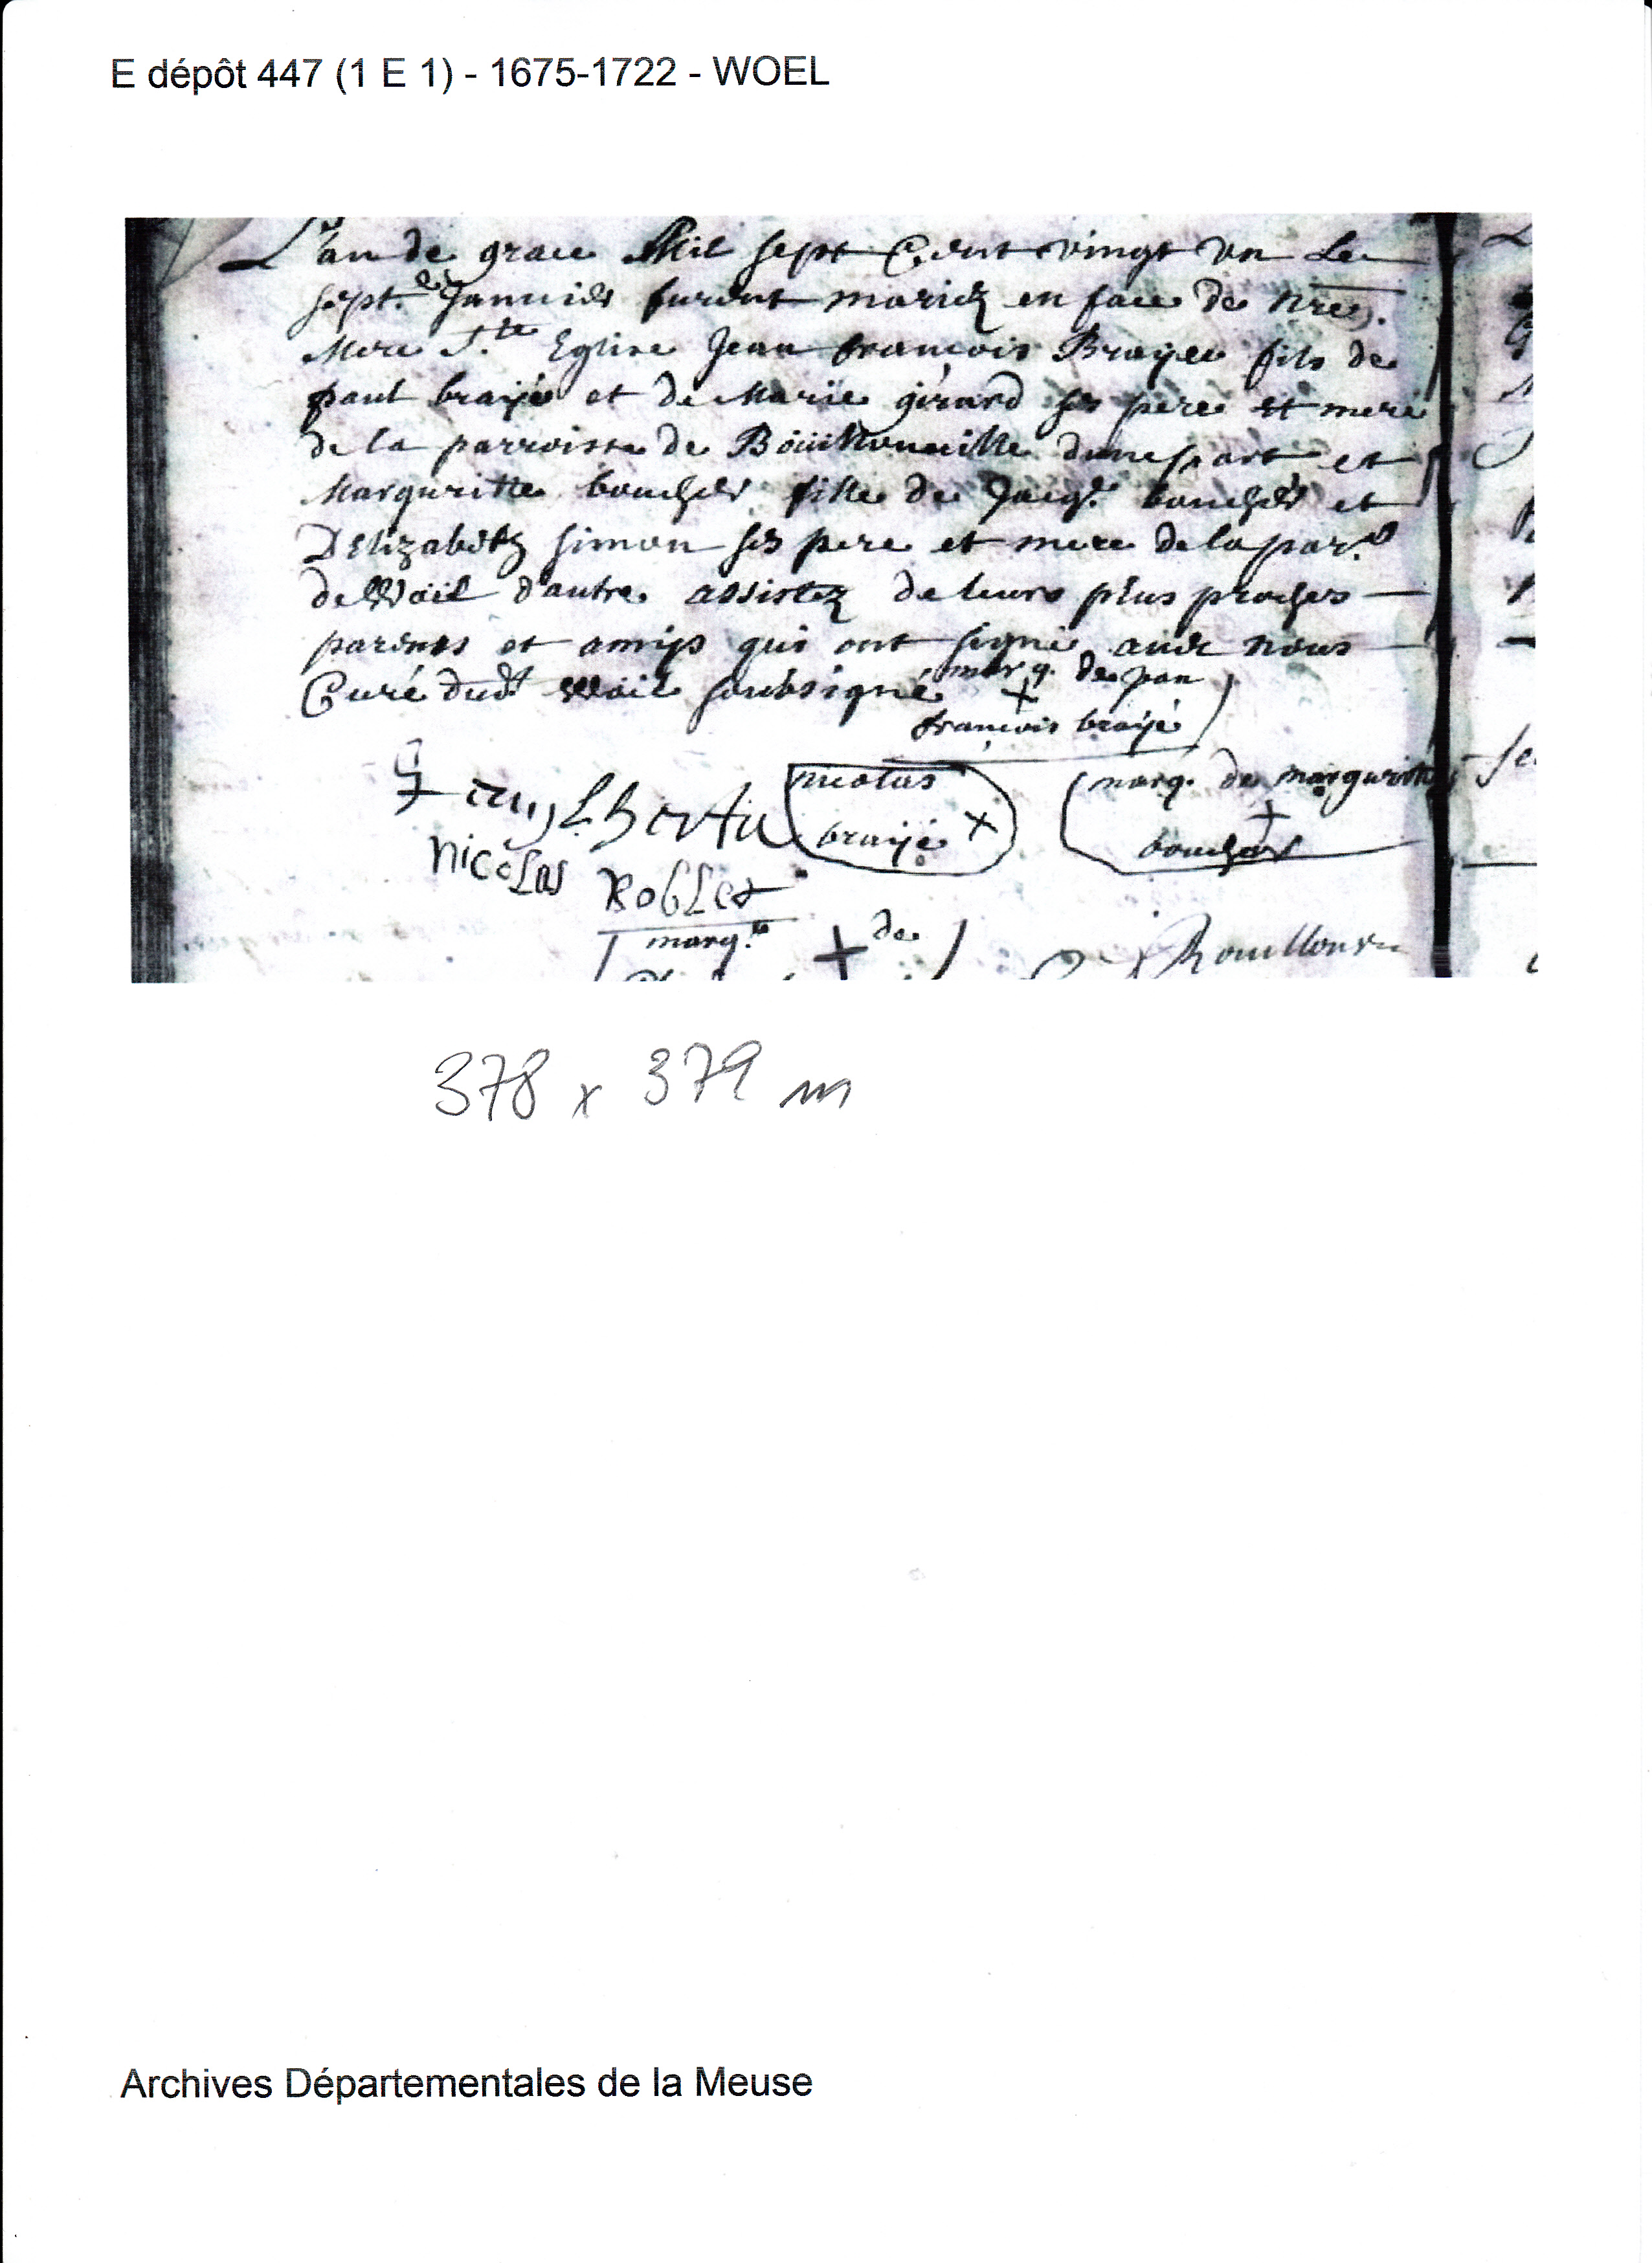 E dépôt 447 (1 E 1) - 1675-1722 - WOEL
L'an de grace Mil sept Cent vingt un Le
sept.e de Janvier furent mariez en face de nre.
Mere S.te Eglise Jean francois Brayée fils de
paul brayé et de Marie girard ses pere et mere
de la parroisse de Boüillonuille dune part et
Margueritte boucher fille de Jacq. boucher et
D'Elizabeth simon ses pere et mere de la par.e
de Woil d'autre assistez de leurs plus proches
parents et amys qui ont signé avec nous
Curé dud.t Woil soubsigné marq. de jean
+
francois brayé
Nicolas
brayé +
marq. de margueritte
+
boucher
Nicolas
RobLet
marq.e + de
Rouillon
378 x 379 m
Archives Départementales de la Meuse